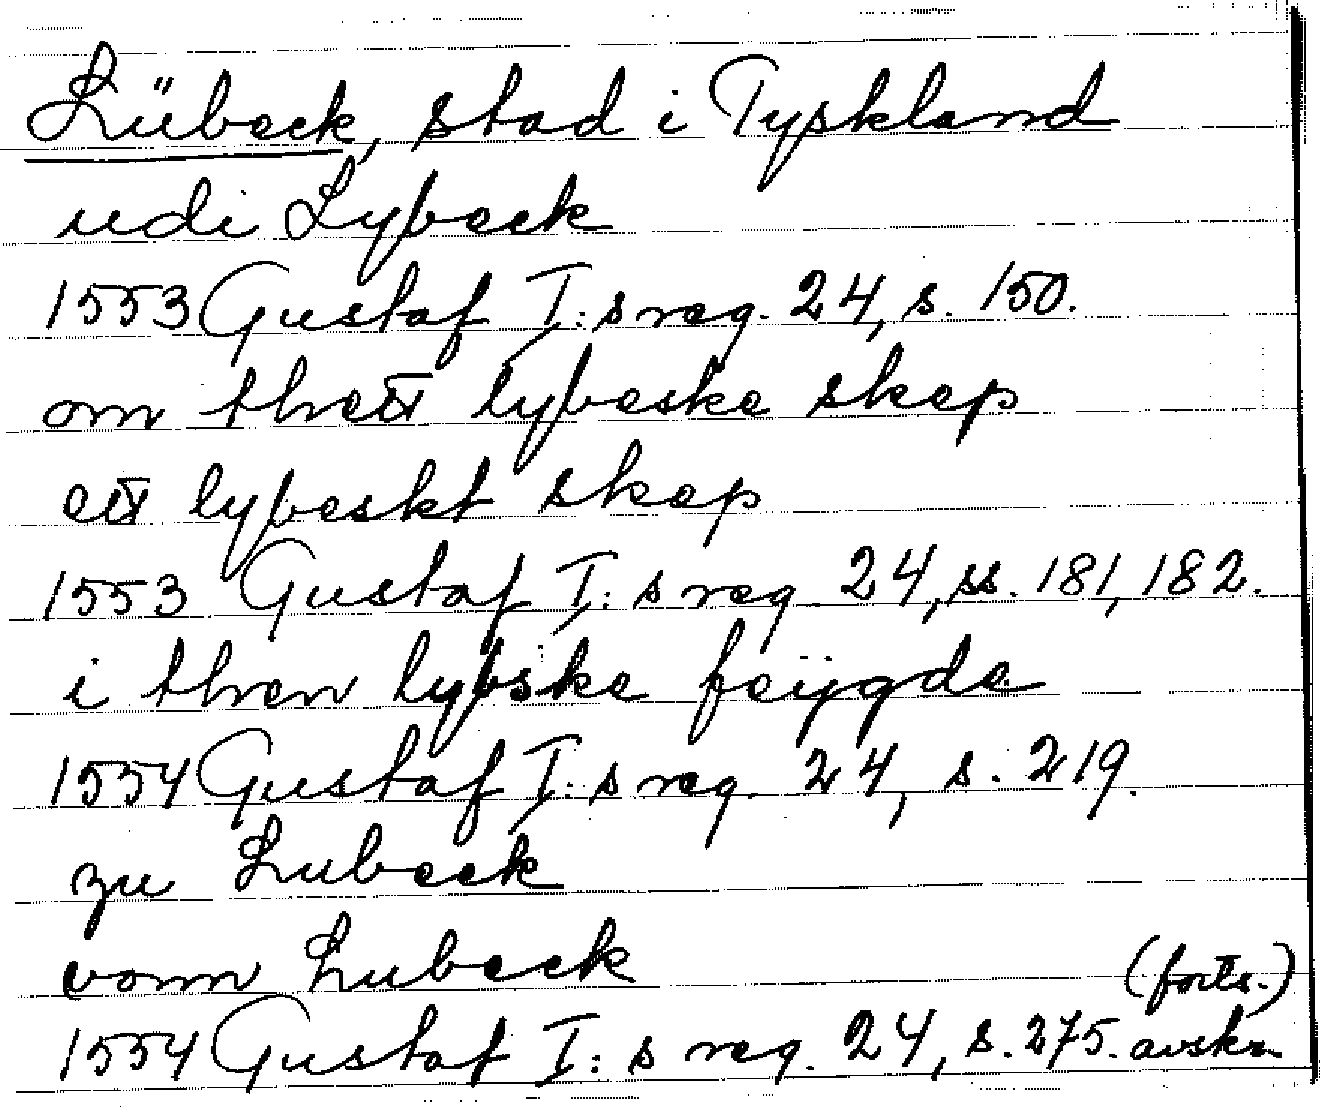 Lübeck, stad i Tyskland
udi Lybeck
1553 Gustaf I:s reg. 24, s. 150.
om thett lybeske skep
ett lybeskt skep
1553 Gustaf I:s reg. 24, ss. 181, 182.
i then lybske feÿgde
1554 Gustaf I:s reg. 24, s. 219.
zu Lubeck
vonn Lubeck
(forts.)
1554 Gustaf I:s reg. 24, s. 275. avskr.